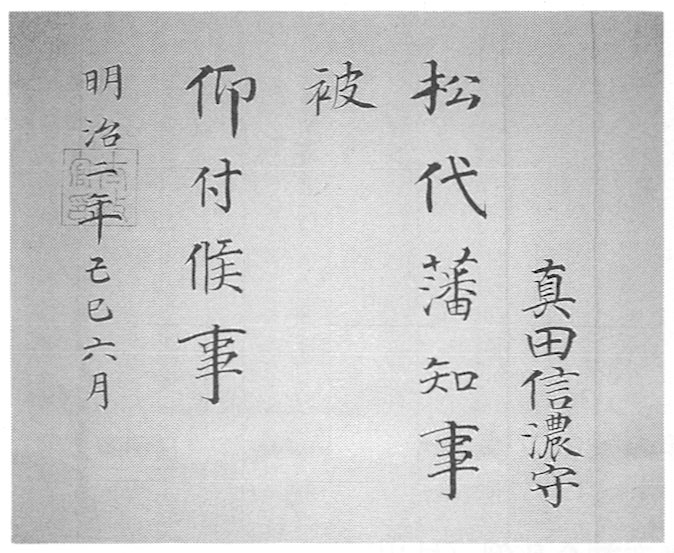 真田信濃守
松代藩知事
被
仰付候事
明治二年己巳六月